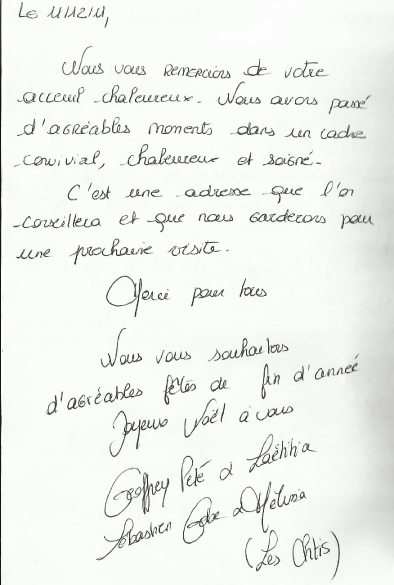 Le 11/12/11,
Nous vous remercions de votre
acceuil chaleureux. Nous avons passé
d'agréables moments dans un cadre
convivial, chaleureux et soigné.
C'est une adresse que l'on
conseillera et que nous garderons pour
une prochaine visite.
Merci pour tous
Nous vous souhaitons
d'agréables fêtes de fin d'année
Joyeux Noël à vous
Geoffrey Pété & Laëtitia
Sébastien & Mélissa
(Les Chtis)